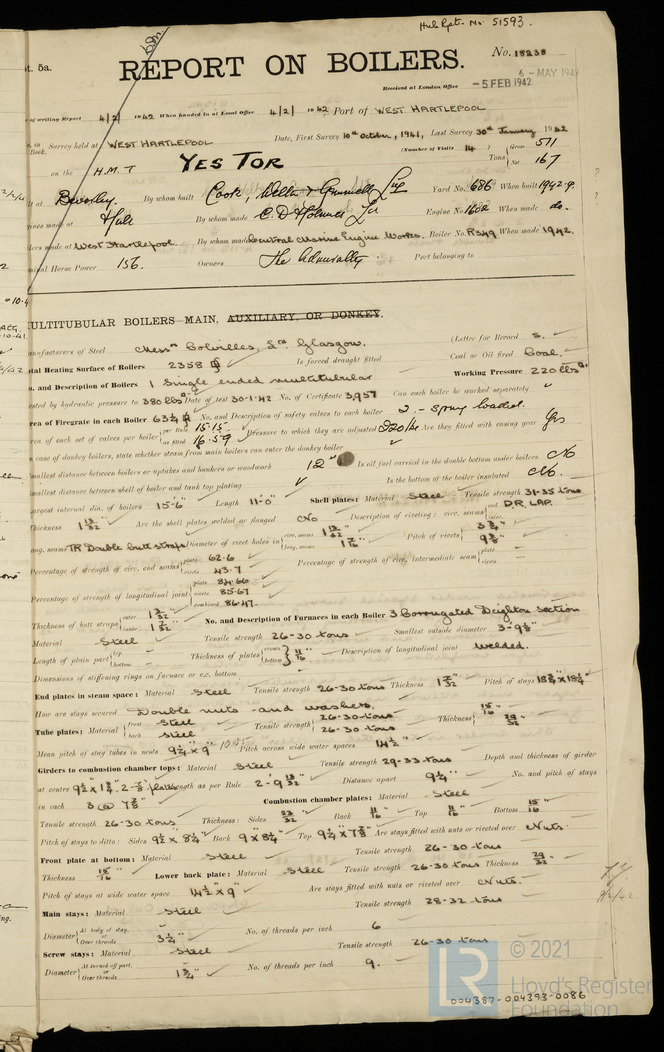 Hul Rpt. No 51593.
pt. 5a.
REPORT ON BOILERS.
No. 15238
6 - MAY 1942
Received at London Office - 5 FEB 1942
of writing Report 4/2/ 1942 When handed in at Local Office 4/2/ 1942 Port of WEST HARTLEPOOL
Survey held at WEST HARTLEPOOL Date, First Survey 10th October, 1941, Last Survey 30th January 1942
Book. (Number of Visits 14)
on the H.M.T YES TOR Tons Gross 511 Net 167
at Beverley. By whom built Cook, Welton & Gemmell Ltd Yard No. 686 When built 1942-4.
made at Hull By whom made C. D. Holmes Ltd Engine No. 1602 When made do.
made at West Hartlepool. By whom made Central Marine Engine Works. Boiler No. R349 When made 1942.
Horse Power 156. Owners The Admiralty. Port belonging to
MULTITUBULAR BOILERS MAIN, AUXILIARY, OR DONKEY.
Manufacturers of Steel Messrs Colvilles, Ld Glasgow. (Letter for Record S.
Total Heating Surface of Boilers 2358 Is forced draught fitted Coal or Oil fired Coal.
No. and Description of Boilers 1 Single ended multitubular Working Pressure 220 lbs
Tested by hydraulic pressure to 380 lbs Date of test 30-1-42 No. of Certificate 3,957 Can each boiler be worked separately
Area of Firegrate in each Boiler 63¼ No. and Description of safety valves to each boiler 2. - Spring loaded.
Area of each set of valves per boiler per Rule 15.15 as fitted 16.59 Pressure to which they are adjusted 220 lbs Are they fitted with easing gear Yes
In case of donkey boilers, state whether steam from main boilers can enter the donkey boiler
Smallest distance between boilers or uptakes and bunkers or woodwork 12" Is oil fuel carried in the double bottom under boilers No
Smallest distance between shell of boiler and tank top plating Is the bottom of the boiler insulated No.
Largest internal dia. of boilers 15'-6" Length 11'-0" Shell plates: Material Steel Tensile strength 31-35 tons
Thickness 1 13/32" Are the shell plates welded or flanged No Description of riveting: circ. seams end D.R. LAP.
long. seams TR Double butt straps Diameter of rivet holes in circ. seams 1 13/32" long. seams 1 7/16" Pitch of rivets 3¾" 9⅜"
Percentage of strength of circ. end seams plate 62.6 rivets 43.7 Percentage of strength of circ. intermediate seam plate rivets
Percentage of strength of longitudinal joint plate 84.66 rivets 85.67 combined 86.47.
Thickness of butt straps outer 1 3/32" inner 1 7/32" No. and Description of Furnaces in each Boiler 3 Corrugated Deighton section
Material Steel Tensile strength 26-30 tons Smallest outside diameter 3'-9⅛"
Length of plain part top bottom Thickness of plates crown bottom 11/16" Description of longitudinal joint Welded.
Dimensions of stiffening rings on furnace or c.c. bottom
End plates in steam space: Material Steel Tensile strength 26-30 tons Thickness 1 7/32" Pitch of stays 18¾" x 18¼"
How are stays secured Double nuts and washers.
Tube plates: Material front Steel back Steel Tensile strength 26-30 tons 26-30 tons Thickness 15/16" 29/32"
Mean pitch of stay tubes in nests 9¼" x 9" Pitch across wide water spaces 14½"
Girders to combustion chamber tops: Material Steel Tensile strength 29-33 tons Depth and thickness of girder
at centre 9½" x 1¾". 2-⅞" plates Length as per Rule 2'-9 13/32" Distance apart 9¼" No. and pitch of stays
in each 3 @ 7⅞" Combustion chamber plates: Material Steel
Tensile strength 26-30 tons Thickness: Sides 23/32" Back 11/16" Top 11/16" Bottom 15/16"
Pitch of stays to ditto: Sides 9½" x 8¼" Back 9 x 8¼" Top 9¼" x 7⅞" Are stays fitted with nuts or riveted over Nuts.
Front plate at bottom: Material Steel Tensile strength 26-30 tons
Thickness 15/16" Lower back plate: Material Steel Tensile strength 26-30 tons Thickness 29/32"
Pitch of stays at wide water space 14½" x 9" Are stays fitted with nuts or riveted over Nuts.
Main stays: Material Steel Tensile strength 28-32 tons
Diameter At body of stay, or Over threads 3¼" No. of threads per inch 6
Screw stays: Material Steel Tensile strength 26-30 tons
Diameter At turned off part, or Over threads 1¾" No. of threads per inch 9.
LR © 2021
Lloyd's Register
Foundation
004387-004393-0086